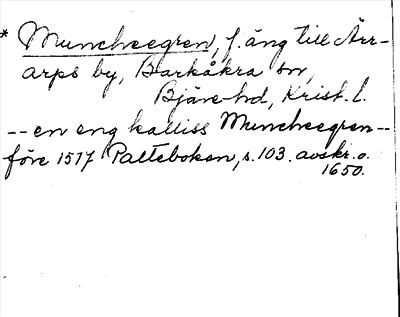 * Muncheegren, f. äng till Ärr-
arps by, Barkåkra sn,
Bjäre hd, Krist. l.
-- en eng kalliss Muncheegren --
före 1517 Palteboken, s. 103. avskr. o.
1650.